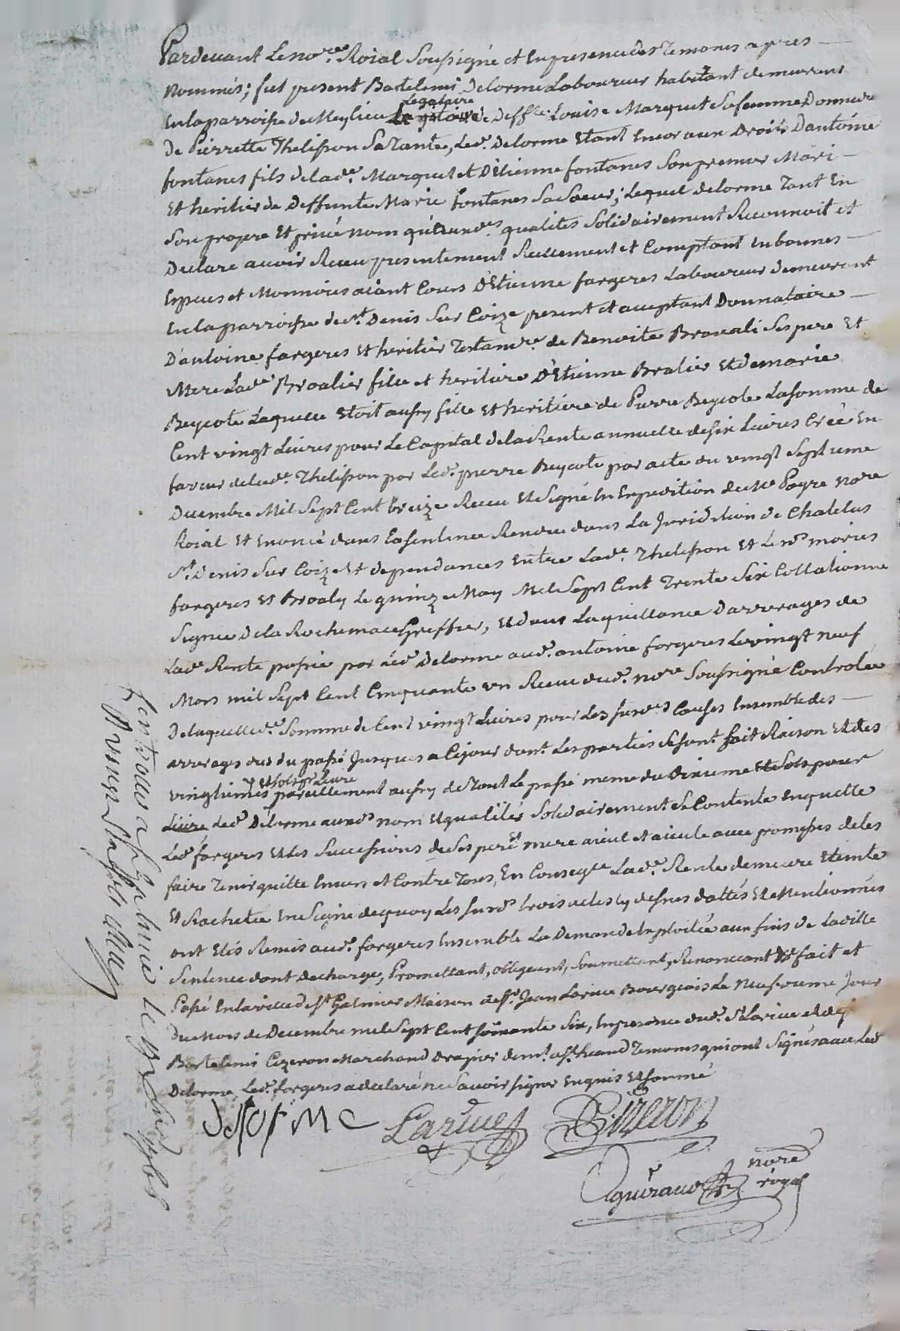 Pardevant Le no.re Roial Soussigné et En presence des Temoins apres
Nommés; fut present Bartelemi Delorme Laboureur habitant demeurant
En la parroisse de Meylieu Legataire de Deff.te Louise Marquet Sa femme Donnere
De Pierrette Thelisson Sa Tante, Led. Delorme Etant Encor aux Droits D'antoine
fontanes fils de lad.e Marquet et D'Etienne fontanes Son premier Mari
Et heritier de Deffunte Marie fontanes Sa Soeur; Lequel delorme Tant En
Son propre Et privé nom qu'Euxd.s qualités Solidairement Reconnoit et
Declare avoir Receu presentement Reellement et Comptant En bonnes
Especes et Monnoies aiant Cours D'Etienne fargeres Laboureur demeurant
En la parroisse de S.t Denis Sur Coize present et acceptant Donnataire
D'antoine fargeres Et heritier Testam.re de Benoite Broaali Ses pere Et
Mere Lad.e Broalier fille et heritiere D'Etienne Bralier Et de marie
Beycote Laquelle Etoit aussy fille Et heritiere de Pierre Beycole La Somme de
Cent vingt Livres pour Le Capital de la Rente annuelle de Six Livres Créée En
faveur de lad.e Thelisson par Led. pierre Beycote par acte du vingt Sept.eme
Decembre Mil Sept Cent treize Receu Et Signé En Expedition de M.e Payre no.re
Roial Et Enoncé dans La Sentence Rendue dans La Juridiction de Chatelus
S.t Denis Sur Coize Et dependances Entre Lad.e Thelisson Et Les d. maries
fargeres Et Broaly Le quinze May Mil Sept Cent Trente Six Collationné
Signée De la Roche mace Greffier, Et dans La quittance D'arrerages de
Lad.e Rente passée par Led. Delorme aud. antoine fargeres Le vingt neuf
Mars mil Sept Cent Cinquante un Receu dud. no.re Soussigné Controlée
De laquelle d.e Somme de Cent vingt Livres pour Les Susd.s Causes Ensemble des
arrerages dus du passé Jusques a Ce jour dont Les parties Se Sont fait Raison Et des
vingtiemes et sols pr Livre pareillement aussy de Tout Le passé meme du Dixieme Et Sols pour
Livre Led. Delorme auxd. nom Et qualités Solidairement Se Contente En quitte
Led. fargeres Et Les Successions de Ses pere mere aieul et aieule avec promesses de les
faire Tenir quitte Envers et Contre Tous, En Conseq.ce Lad.e Rente demeure Eteinte
Et Rachetée En Signe de quoy Les Susd. trois actes cy desus dattés Et Mentionnés
ont Etés Remis aud. fargeres Ensemble La Demande Exploitée aux fins de Laditte
Sentence dont decharge, Promettant, obligeant, Soumettant, Renonceant &c fait et
Passé En la ville de S.t Galmier Maison de S.r Jean Larive Bourgeois Le Neufvieme Jour
Du Mois de Decembre mil Sept Cent Soixante Six, En presence dud. S.r Larive et de S.r
Bartelemi Cizeron Marchand drapier dem.t aS.t heand Temoins qui ont Signés avec Led.
Delorme, Led. fargeres a declaré ne Savoir Signer Enquis Et Sommé
delorme Larive Cizeron
no.re
royal